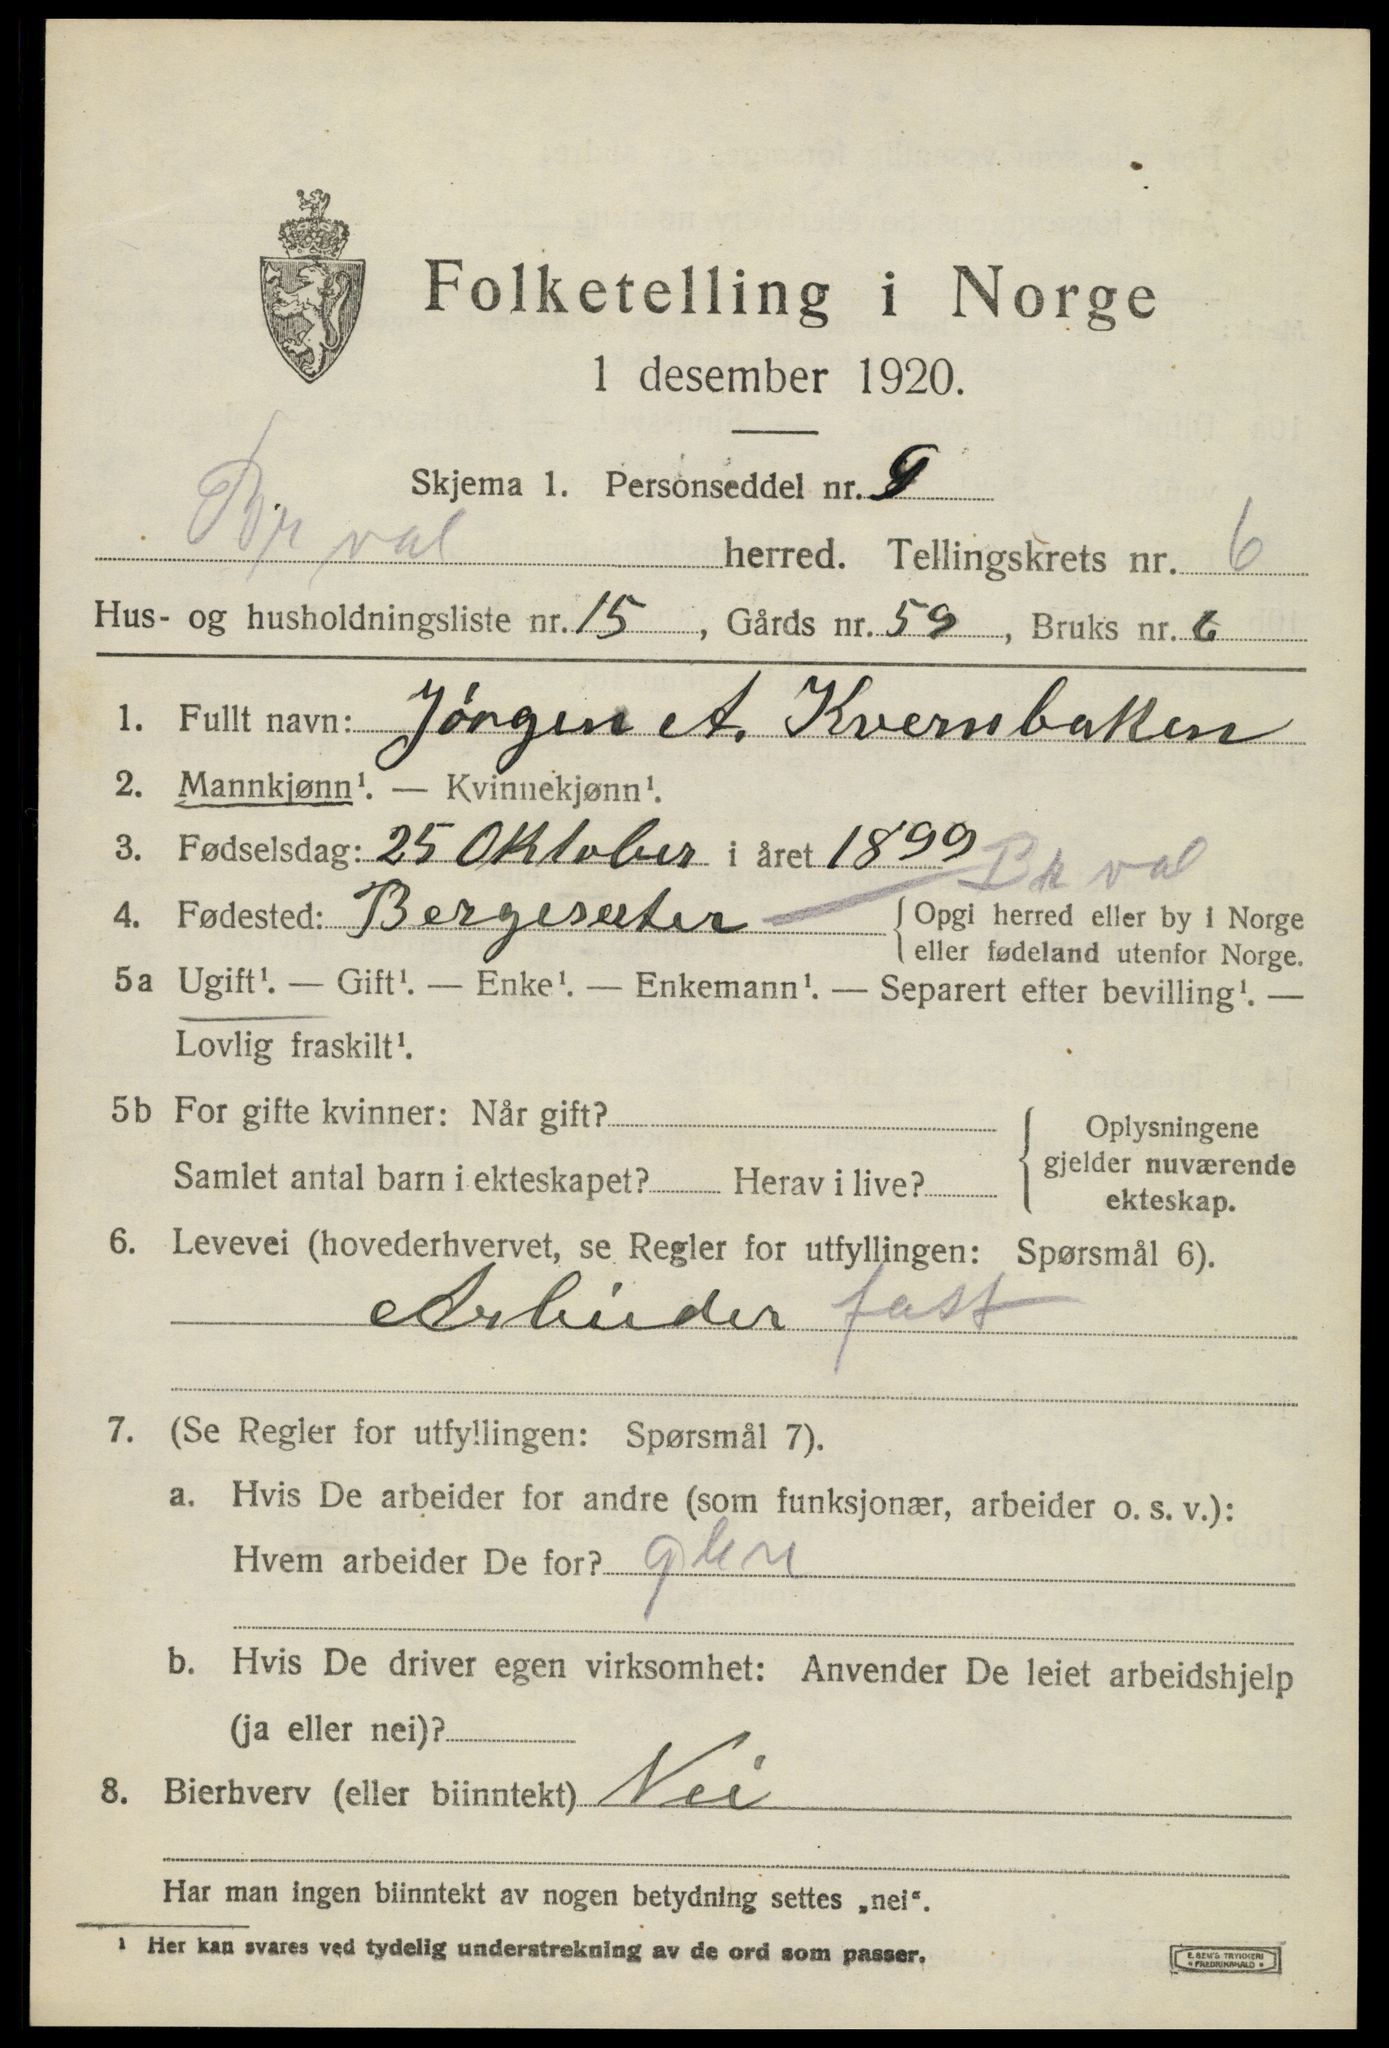 Folketelling i Norge
1 desember 1920.
Skjema 1. Personseddel nr.
herred. Tellingskrets nr. 6
Hus- og husholdningsliste nr. 15, Gårds nr. 59, Bruks nr. 6
1. Fullt navn: Jørgen A. Kvernbaken
2. Mannkjønn¹. — Kvinnekjønn¹.
3. Fødselsdag: 25 Oktober i året 1899
4. Fødested: Bergesæter { Opgi herred eller by i Norge
eller fødeland utenfor Norge.
5a Ugift¹. — Gift¹. — Enke¹. — Enkemann¹. — Separert efter bevilling¹. —
Lovlig fraskilt¹.
5b For gifte kvinner: Når gift? { Oplysningene
gjelder nuværende
Samlet antal barn i ekteskapet? Herav i live?
ekteskap.
6. Levevei (hovederhvervet, se Regler for utfyllingen: Spørsmål 6).
Arbeider fast
7. (Se Regler for utfyllingen: Spørsmål 7).
a. Hvis De arbeider for andre (som funksjonær, arbeider o. s. v.):
Hvem arbeider De for?
b. Hvis De driver egen virksomhet: Anvender De leiet arbeidshjelp
(ja eller nei)?
8. Bierhverv (eller biinntekt) Nei
Har man ingen biinntekt av nogen betydning settes „nei“.
¹ Her kan svares ved tydelig understrekning av de ord som passer.
E. SEM'S TRYKKERI
* FREDRIKSHALD *